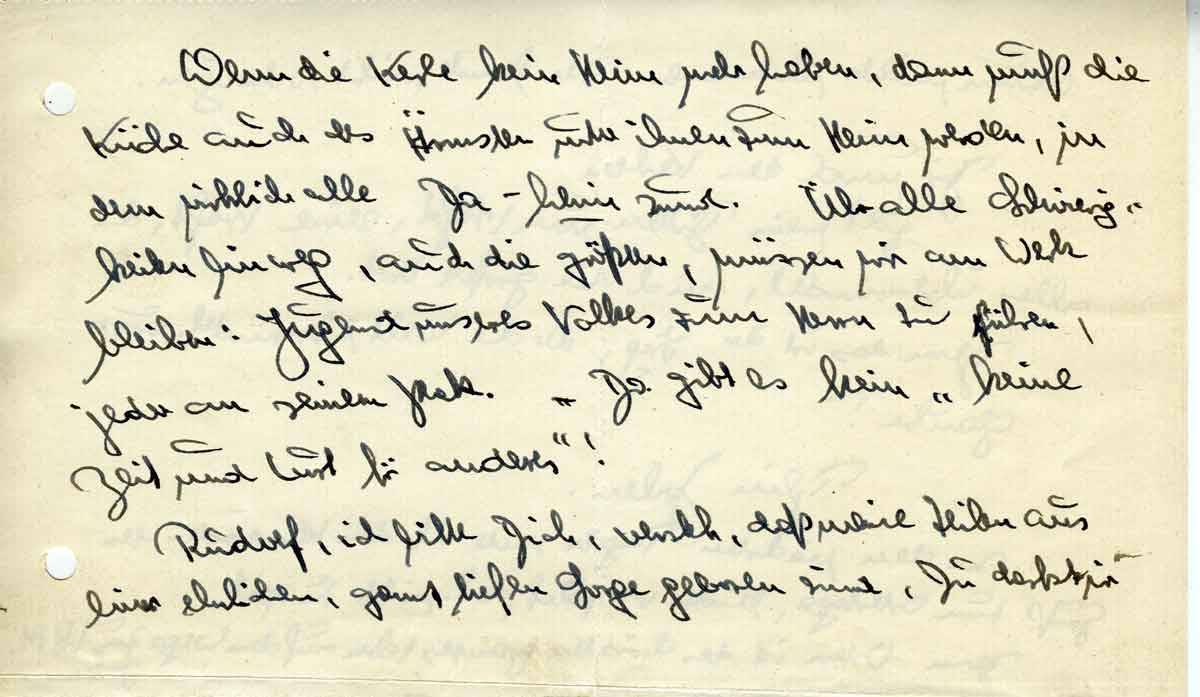 Wenn die Kerle kein Heim mehr haben, dann muß die
Küche auch des Ärmsten unter ihnen zum Heim werden, in
dem wirklich alle Da- sind. Über alle Schwierig-
keiten hinweg, auch die größten, müssen wir am Werk
bleiben: Jugend unseres Volkes zum Herrn zu führen,
jeder an seinem Platz. „ Da gibt es kein „ keine
Zeit und Lust für anderes“!
Rudolf, ich bitte Dich, versteh, daß meine Zeilen aus
einer ehrlichen, ganz tiefen Sorge geboren sind, Du darfst